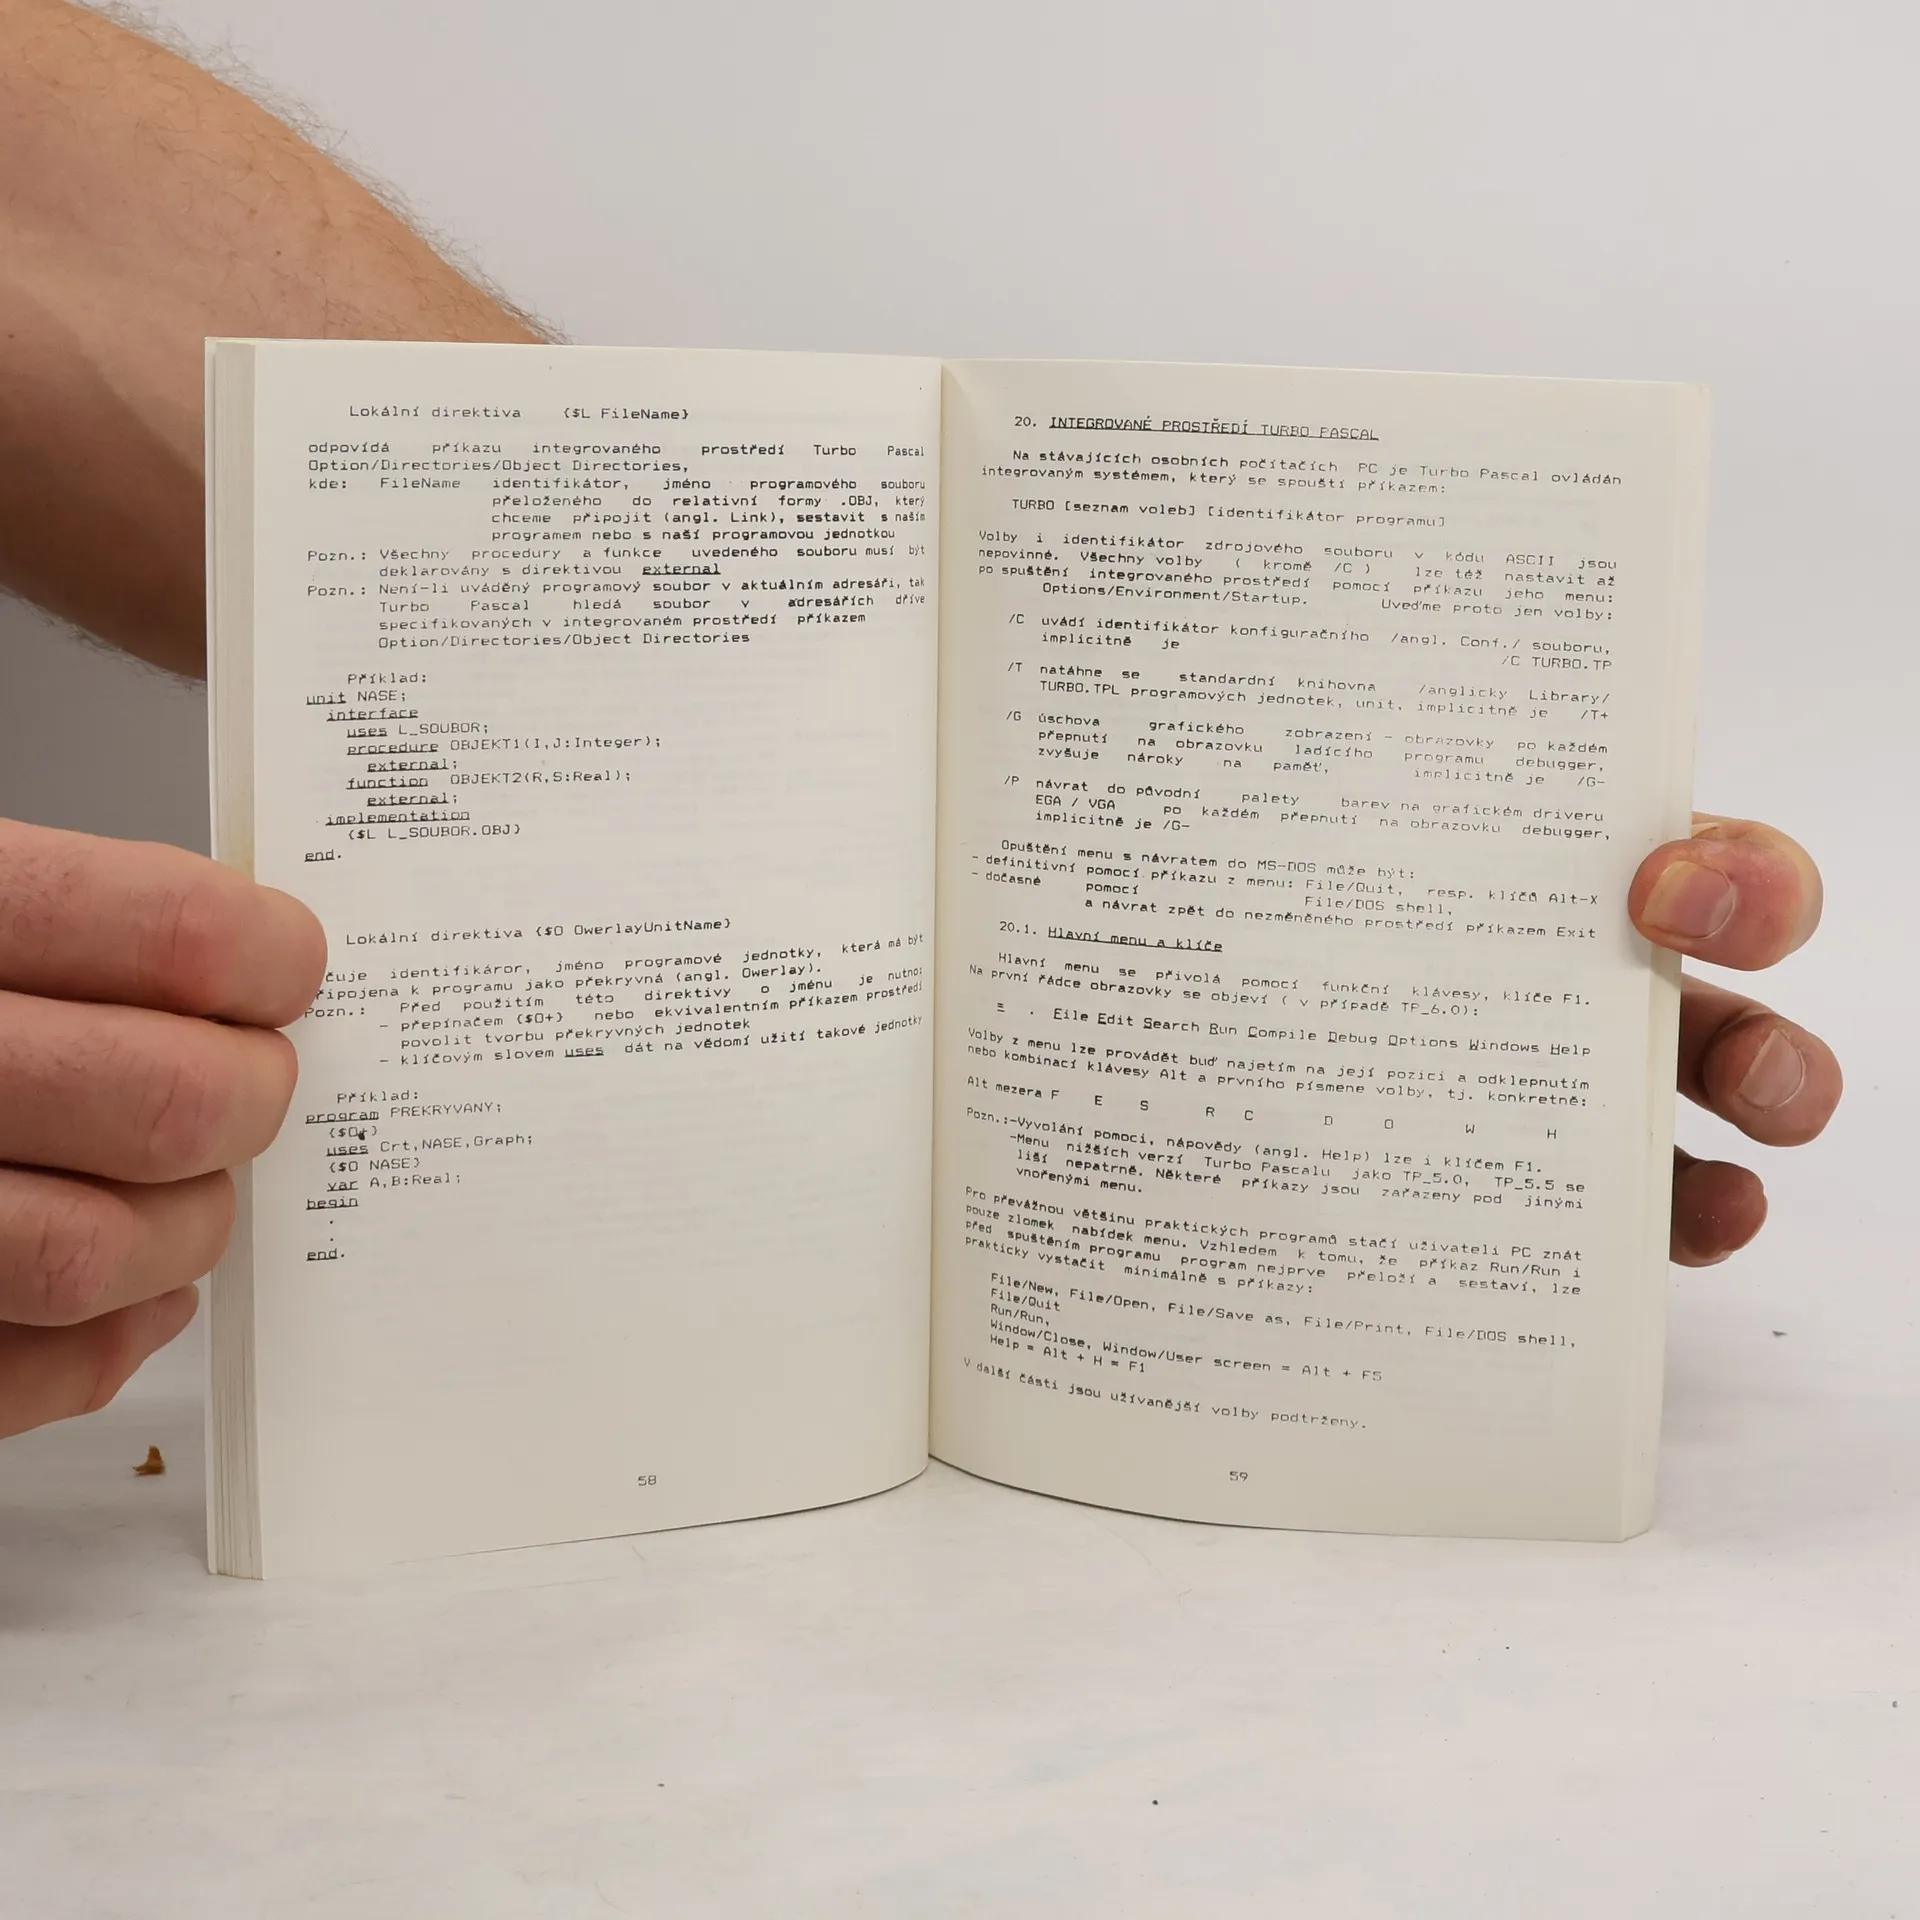 Lokální direktiva {$L FileName}
odpovídá příkazu integrovaného prostředí Turbo Pascal
Option/Directories/Object Directories,
kde: FileName identifikátor, jméno programového souboru
přeloženého do relativní formy .OBJ, který
chceme připojit (angl. Link), sestavit s naším
programem nebo s naší programovou jednotkou
Pozn.: Všechny procedury a funkce uvedeného souboru musí být
deklarovány s direktivou external
Pozn.: Není-li uváděný programový soubor v aktuálním adresáři, tak
Turbo Pascal hledá soubor v adresářích dříve
specifikovaných v integrovaném prostředí příkazem
Option/Directories/Object Directories
Příklad:
unit NASE;
interface
uses L_SOUBOR;
procedure OBJEKT1(I,J:Integer);
external;
function OBJEKT2(R,S:Real);
external;
implementation
{$L L_SOUBOR.OBJ}
end.
Lokální direktiva {$O OwerlayUnitName}
čuje identifikáror, jméno programové jednotky, která má být
řipojena k programu jako překryvná (angl. Owerlay).
Pozn.: Před použitím této direktivy o jménu je nutno:
- přepínačem {$O+} nebo ekvivalentním příkazem prostředí
povolit tvorbu překryvných jednotek
- klíčovým slovem uses dát na vědomí užití takové jednotky
Příklad:
program PREKRYVANY;
{$O+}
uses Crt,NASE,Graph;
{$O NASE}
var A,B:Real;
begin
.
.
end.
58
20. INTEGROVANÉ PROSTŘEDÍ TURBO PASCAL
Na stávajících osobních počítačích PC je Turbo Pascal ovládán
integrovaným systémem, který se spouští příkazem:
TURBO [seznam voleb] [identifikátor programu]
Volby i identifikátor zdrojového souboru v kódu ASCII jsou
nepovinné. Všechny volby ( kromě /C ) lze též nastavit až
po spuštění integrovaného prostředí pomocí příkazu jeho menu:
Options/Environment/Startup. Uveďme proto jen volby:
/C uvádí identifikátor konfiguračního /angl. Conf./ souboru,
implicitně je /C TURBO.TP
/T natáhne se standardní knihovna /anglicky Library/
TURBO.TPL programových jednotek, unit, implicitně je /T+
/G úschova grafického zobrazení - obrazovky po každém
přepnutí na obrazovku ladícího programu debugger,
zvyšuje nároky na paměť, implicitně je /G-
/P návrat do původní palety barev na grafickém driveru
EGA / VGA po každém přepnutí na obrazovku debugger,
implicitně je /G-
Opuštění menu s návratem do MS-DOS může být:
- definitivní pomocí příkazu z menu: File/Quit, resp. klíčů Alt-X
- dočasné pomocí File/DOS shell,
a návrat zpět do nezměněného prostředí příkazem Exit
20.1. Hlavní menu a klíče
Hlavní menu se přivolá pomocí funkční klávesy, klíče F1.
Na první řádce obrazovky se objeví ( v případě TP_6.0):
≡ . File Edit Search Run Compile Debug Options Windows Help
Volby z menu lze provádět buď najetím na její pozici a odklepnutím
nebo kombinací klávesy Alt a prvního písmene volby, tj. konkretně:
Alt mezera F E S R C D O W H
Pozn.:-Vyvolání pomoci, nápovědy (angl. Help) lze i klíčem F1.
-Menu nižších verzí Turbo Pascalu jako TP_5.0, TP_5.5 se
liší nepatrně. Některé příkazy jsou zařazeny pod jinými
vnořenými menu.
Pro převážnou většinu praktických programů stačí uživateli PC znát
pouze zlomek nabídek menu. Vzhledem k tomu, že příkaz Run/Run i
před spuštěním programu program nejprve přeloží a sestaví, lze
prakticky vystačit minimálně s příkazy:
File/New, File/Open, File/Save as, File/Print, File/DOS shell,
File/Quit
Run/Run,
Window/Close, Window/User screen = Alt + F5
Help = Alt + H = F1
V další části jsou užívanější volby podtrženy.
59